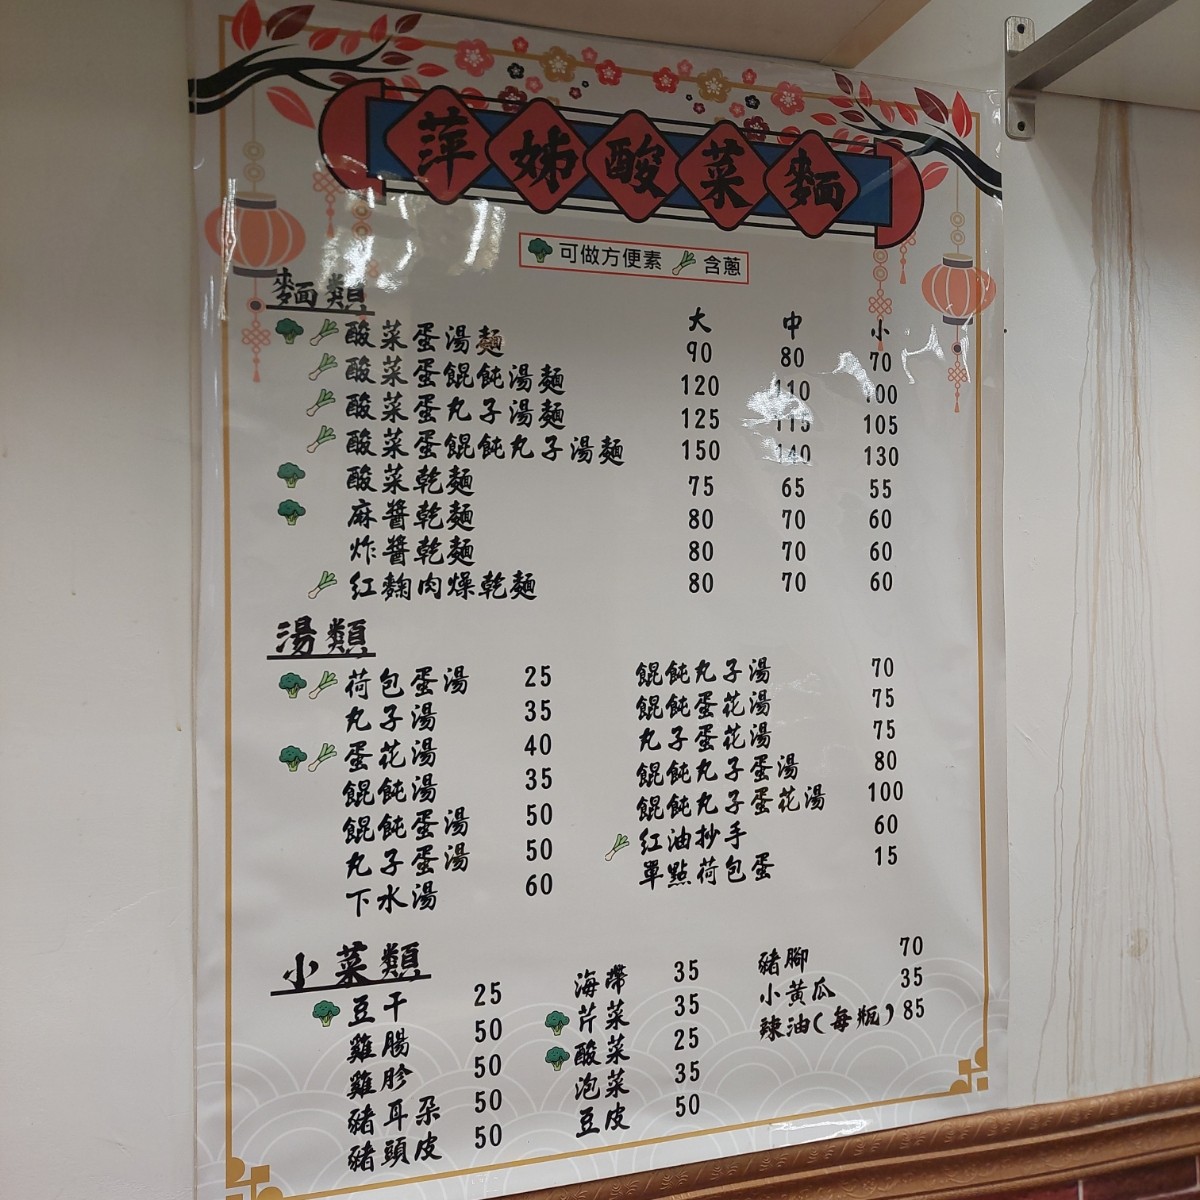 萍姊酸菜麵
可做方便素 含蔥
麵類
大 中 小
酸菜蛋湯麵 90 80 70
酸菜蛋餛飩湯麵 120 110 100
酸菜蛋丸子湯麵 125 115 105
酸菜蛋餛飩丸子湯麵 150 140 130
酸菜乾麵 75 65 55
麻醬乾麵 80 70 60
炸醬乾麵 80 70 60
紅麴肉燥乾麵 80 70 60
湯類
荷包蛋湯 25
丸子湯 35
蛋花湯 40
餛飩湯 35
餛飩蛋湯 50
丸子蛋湯 50
下水湯 60
餛飩丸子湯 70
餛飩蛋花湯 75
丸子蛋花湯 75
餛飩丸子蛋湯 80
餛飩丸子蛋花湯 100
紅油抄手 60
單點荷包蛋 15
小菜類
豆干 25
雞腸 50
雞胗 50
豬耳朵 50
豬頭皮 50
海帶 35
芹菜 35
酸菜 25
泡菜 35
豆皮 50
豬腳 70
小黃瓜 35
辣油(每瓶) 85